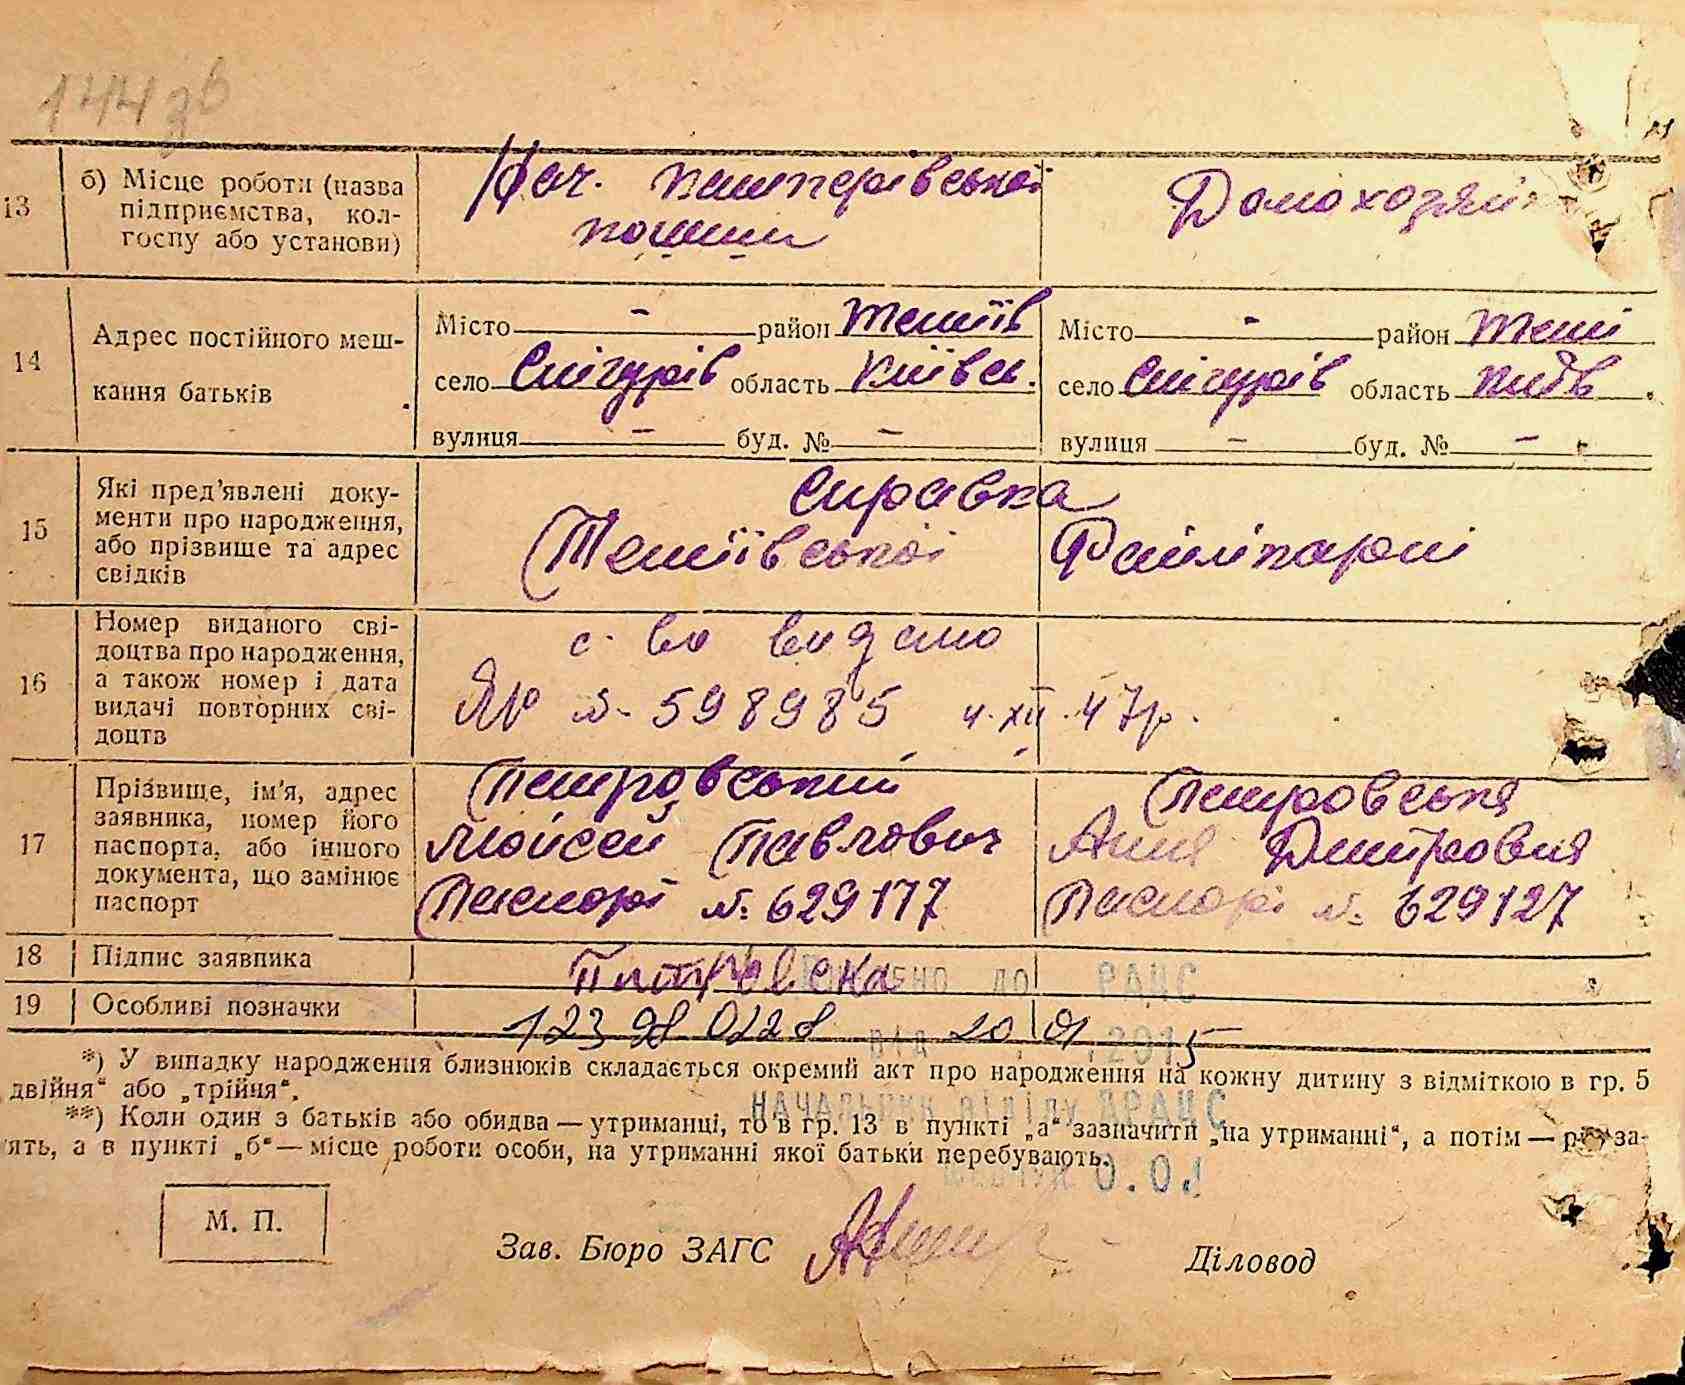 144 зв
13 б) Місце роботи (назва підприємства, колгоспу або установи)
Нач. Кашперівської
пошти
Домохозяйк
14 Адрес постійного мешкання батьків
Місто - район Тетіїв
село Снігурів область Київсь.
вулиця - буд. № -
Місто - район Теті
село Снігурів область Київ
вулиця - буд. № -
15 Які пред'явлені документи про народження, або прізвище та адрес свідків
Справка
Тетіївської
16 Номер виданого свідоцтва про народження, а також номер і дата видачі повторних свідоцтв
с-во видано
ЯР № 598985 4.XII.47р.
17 Прізвище, ім'я, адрес заявника, номер його паспорта, або іншого документа, що замінює паспорт
Петровський
Мойсей Павлович
Паспорт № 629177
Петровська
Анна Дмитровна
Паспорт № 629127
18 Підпис заявника
Петровска
до РАЦС
19 Особливі позначки
від 20 01 2015
*) У випадку народження близнюків складається окремий акт про народження на кожну дитину з відміткою в гр. 5
двійня“ або „трійня“.
НАЧАЛЬНИК відділу ДРАЦС
**) Коли один з батьків або обидва — утриманці, то в гр. 13 в пункті „а“ зазначити „на утриманні“, а потім —
ять, а в пункті „б“ — місце роботи особи, на утриманні якої батьки перебувають.
М. П.
Зав. Бюро ЗАГС
Діловод